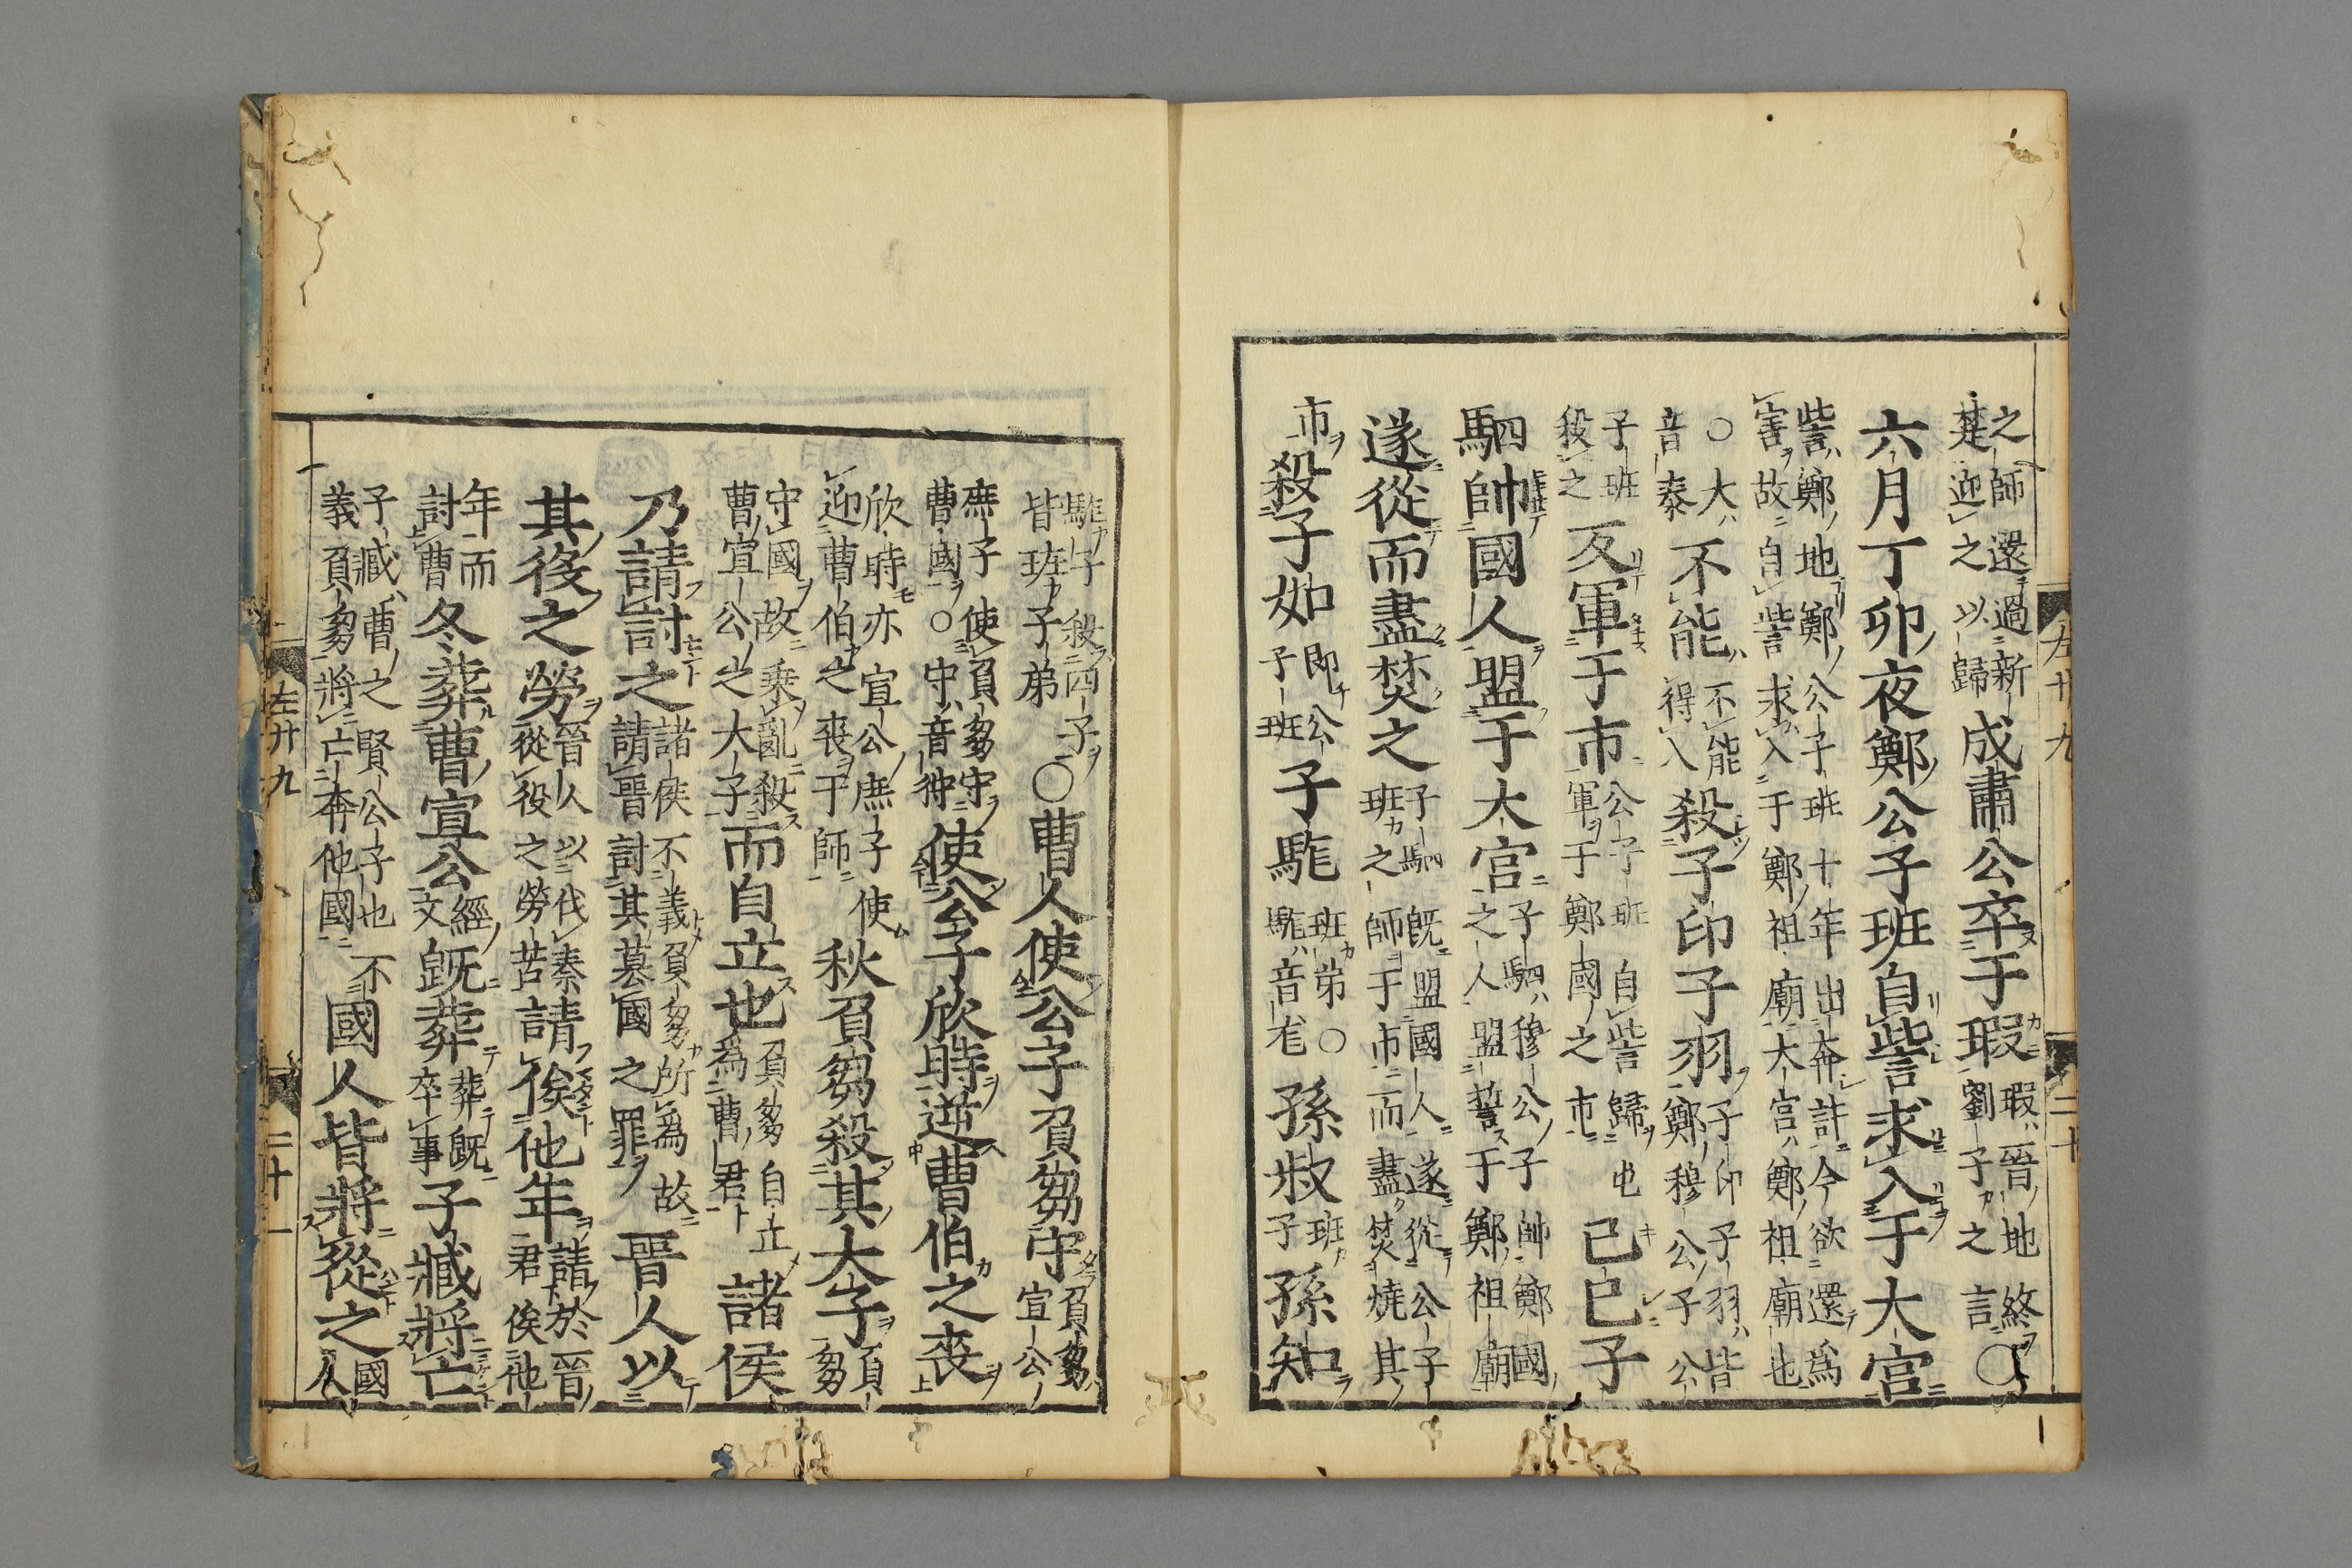 左廿九 二十
之師還過新楚迎之以歸成肅公卒于瑕瑕晉地終劉子之言○
六月丁卯夜鄭公子班自訾求入于大宮
訾鄭地鄭公子班十年出奔許今欲還為害故自訾求入于鄭祖廟大宮鄭祖廟也
○大音泰不能不能得入殺子印子羽子印子羽皆鄭穆公子公
子班殺之反軍于市公子班自訾歸也軍于鄭國之市己巳子
駟帥國人盟于大宮子駟穆公子帥鄭國之人盟誓于鄭祖廟
遂從而盡焚之子駟既盟國人遂從公子班之師于市而盡焚燒其
市殺子如即公子班子駹班弟○駹音尨孫叔班子孫知
駹子殺四子皆班子弟○曹人使公子負芻守負芻宣公
庶子使負芻守曹國○守音狩使公子欣時逆曹伯之喪
欣時亦宣公庶子使迎曹伯之喪于師秋負芻殺其大子負芻
守國故乗亂殺曹宣公之大子而自立也負芻自立為曹君諸侯
乃請討之諸侯不義負芻所為故請晉討其墓國之罪晉人以
其役之勞晉人以伐秦從役之勞苦請俟他年請於晉君俟他
年而討曹冬葬曹宣公經文既葬葬既卒事子臧將亡
子臧曹之賢公子也不義負芻將亡奔他國國人皆將從之國人
左廿九 二十一